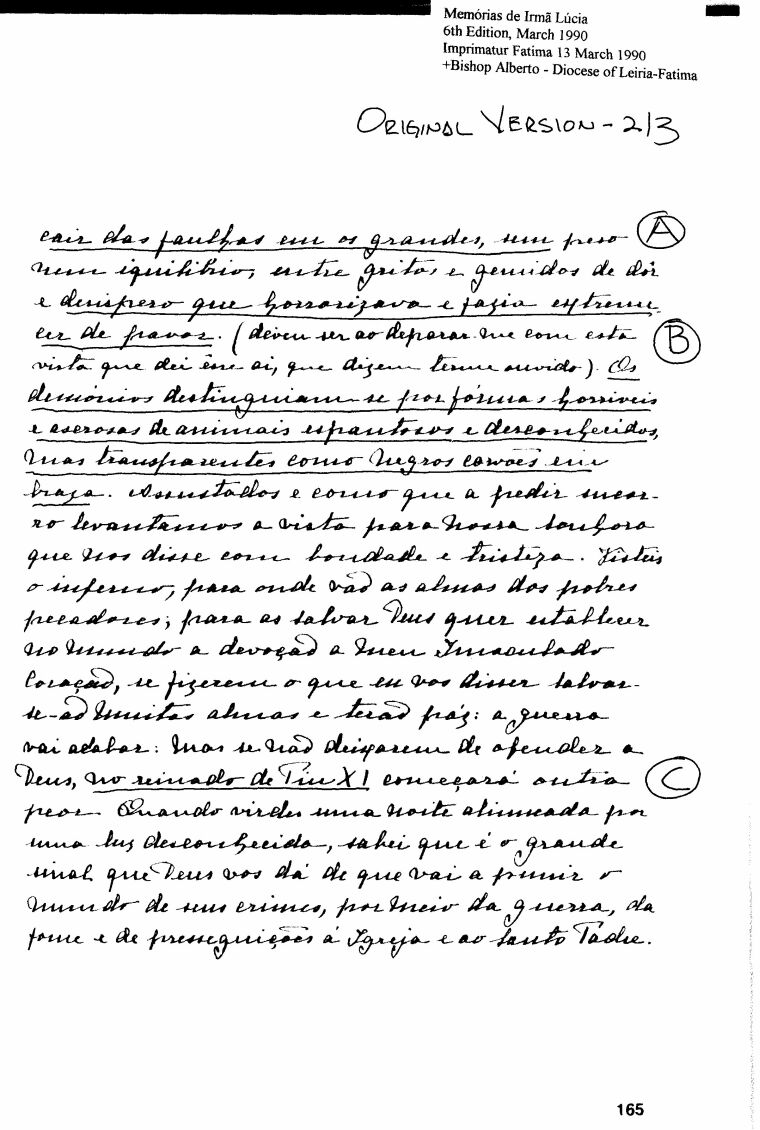 Memórias de Irmã Lúcia
6th Edition, March 1990
Imprimatur Fatima 13 March 1990
+Bishop Alberto - Diocese of Leiria-Fatima
ORIGINAL VERSION - 2/3
cair das faulhas em os grandes, sem peso
A
nem iquilibrio, entre gritos e gemidos de dôr
e desispero que horrorizava e fazia extreme-
cer de pavor. (deveu ser ao deparar-me com esta
B
vista que dei êsse ai, que dizem ter-me ouvido). Os
demónios destinguiam-se por fórmas horriveis
e ascrosas de animais espantosos e desconhecidos,
mas transparentes como negros carvões em
braza. Assustados e como que a pedir sucor-
ro levantamos a vista para Nossa Senhora
que nos disse com bondade e tristeza. Visteis
o inferno, para onde vão as almas dos pobres
pecadores; para as salvar Deus quer establecer
no mundo a devoção a meu Imaculado
Coração, se fizerem o que eu vos disser salvar-
se-ão muitas almas e terão páz: a guerra
vai acabar: mas se não deixarem de ofender a
Deus, no reinado de Pio XI começará outra
C
peor. Quando virdes uma noite alumeada por
uma luz desconhecida, sabei que é o grande
sinal que Deus vos dá de que vai a punir o
mundo de seus crimes, por meio da guerra, da
fome e de presseguições á Igreja e ao Santo Padre.
165